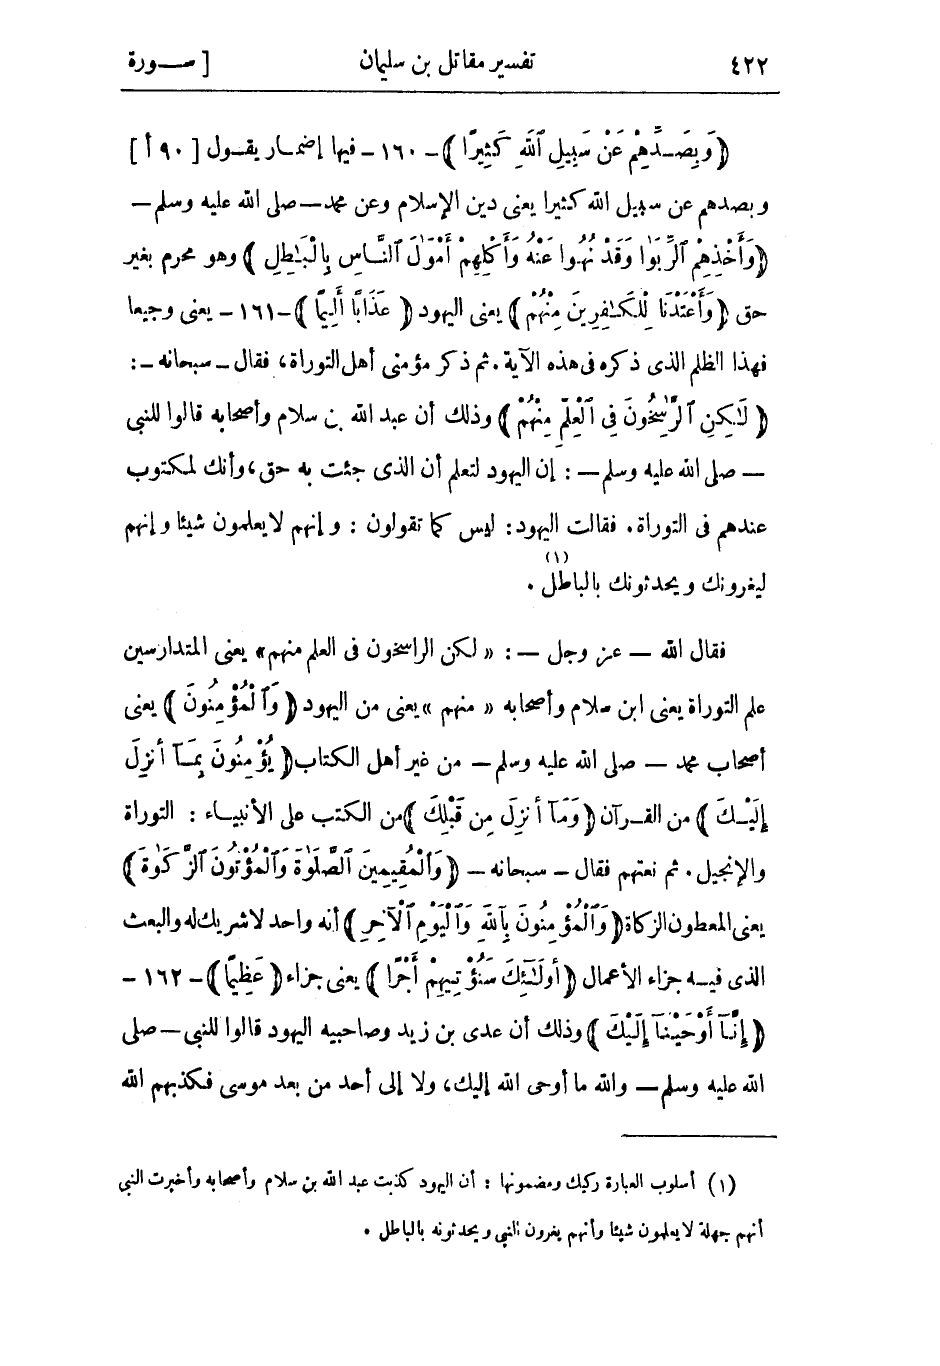 ٤٢٢ تفسير مقاتل بن سليمان [ سـورة
﴿ وَبِصَدِّهِمْ عَنْ سَبِيلِ ٱللَّهِ كَثِيرًا ﴾ - ١٦٠ - فيها إضمار يقول [ ٩٠ أ ]
وبصدهم عن سبيل الله كثيرا يعنى دين الإسلام وعن محمد — صلى الله عليه وسلم —
﴿ وَأَخْذِهِمُ ٱلرِّبَوٰا وَقَدْ نُهُوا عَنْهُ وَأَكْلِهِمْ أَمْوَٰلَ ٱلنَّاسِ بِالْبَـٰطِلِ ﴾ وهو محرم بغير
حق ﴿ وَأَعْتَدْنَا لِلْكَـٰفِرِينَ مِنْهُمْ ﴾ يعنى اليهود ﴿ عَذَابًا أَلِيمًا ﴾ - ١٦١ - يعنى وجيعا
فهذا الظلم الذى ذكره فى هذه الآية . ثم ذكر مؤمنى أهل التوراة ، فقال - سبحانه - :
﴿ لَـٰكِنِ ٱلرَّٰسِخُونَ فِى ٱلْعِلْمِ مِنْهُمْ ﴾ وذلك أن عبد الله بن سلام وأصحابه قالوا للنبى
— صلى الله عليه وسلم — : إن اليهود لتعلم أن الذى جئت به حق ، وأنك لمكتوب
عندهم فى التوراة . فقالت اليهود : ليس كما تقولون : وإنهم لا يعلمون شيئا وإنهم
ليغرونك ويحدثونك بالباطل (١) .
فقال الله — عز وجل — : « لكن الراسخون فى العلم منهم » يعنى المتدارسين
علم التوراة يعنى ابن سلام وأصحابه « منهم » يعنى من اليهود ﴿ وَٱلْمُؤْمِنُونَ ﴾ يعنى
أصحاب محمد — صلى الله عليه وسلم — من غير أهل الكتاب ﴿ يُؤْمِنُونَ بِمَآ أُنزِلَ
إِلَيْكَ ﴾ من القرآن ﴿ وَمَآ أُنزِلَ مِن قَبْلِكَ ﴾ من الكتب على الأنبياء : التوراة
والإنجيل . ثم نعتهم فقال - سبحانه - ﴿ وَٱلْمُقِيمِينَ ٱلصَّلَوٰةَ وَٱلْمُؤْتُونَ ٱلزَّكَوٰةَ ﴾
يعنى المعطون الزكاة ﴿ وَٱلْمُؤْمِنُونَ بِٱللَّهِ وَٱلْيَوْمِ ٱلْآخِرِ ﴾ أنه واحد لا شريك له والبعث
الذى فيه جزاء الأعمال ﴿ أُولَـٰٓئِكَ سَنُؤْتِيهِمْ أَجْرًا ﴾ يعنى جزاء ﴿ عَظِيمًا ﴾ - ١٦٢ -
﴿ إِنَّآ أَوْحَيْنَآ إِلَيْكَ ﴾ وذلك أن عدى بن زيد وصاحبيه اليهود قالوا للنبى — صلى
الله عليه وسلم — والله ما أوحى الله إليك ، ولا إلى أحد من بعد موسى فكذبهم الله
(١) أسلوب العبارة ركيك ومضمونها : أن اليهود كذبت عبد الله بن سلام وأصحابه وأخبرت النبي
أنهم جهلة لا يعلمون شيئا وأنهم يغرون النبى ويحدثونه بالباطل .